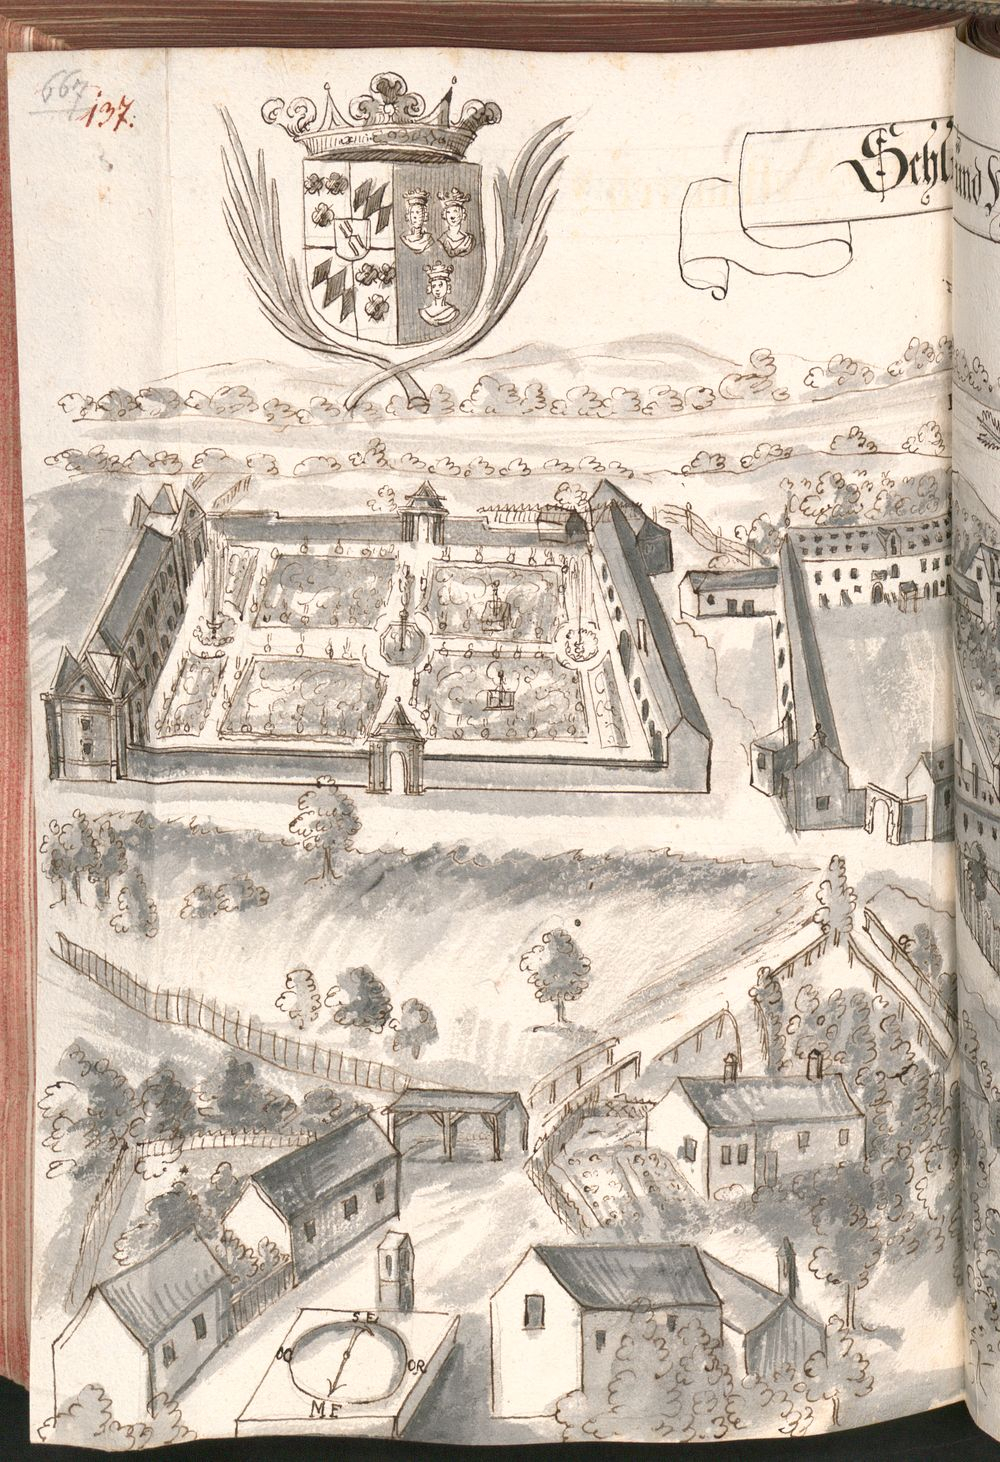 667
137.
Schl
und
SE
OC
OR
ME